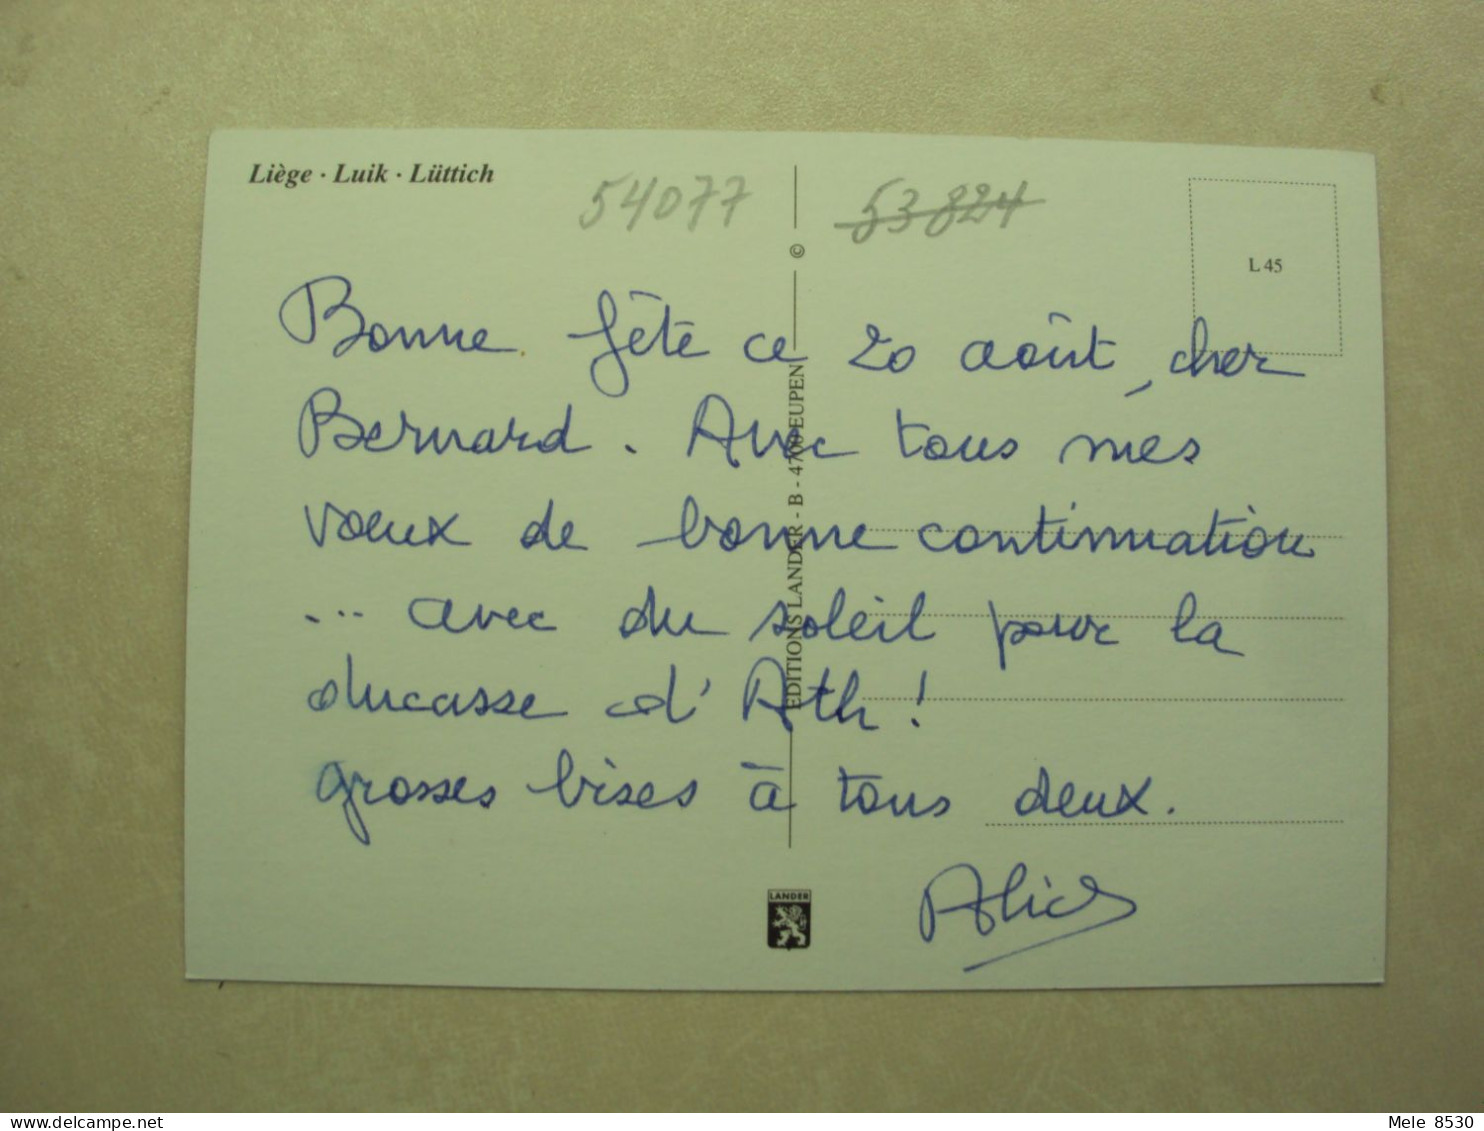 Liège · Luik · Lüttich
54077
53824
L 45
©
EDITIONS LANDER - B - 4700 EUPEN
Bonne fête ce 20 août, cher
Bernard. Avec tous mes
voeux de bonne continuation
... avec du soleil pour la
ducasse d'Ath!
grosses bises à tous deux.
Alice
LANDER
Mele 8530